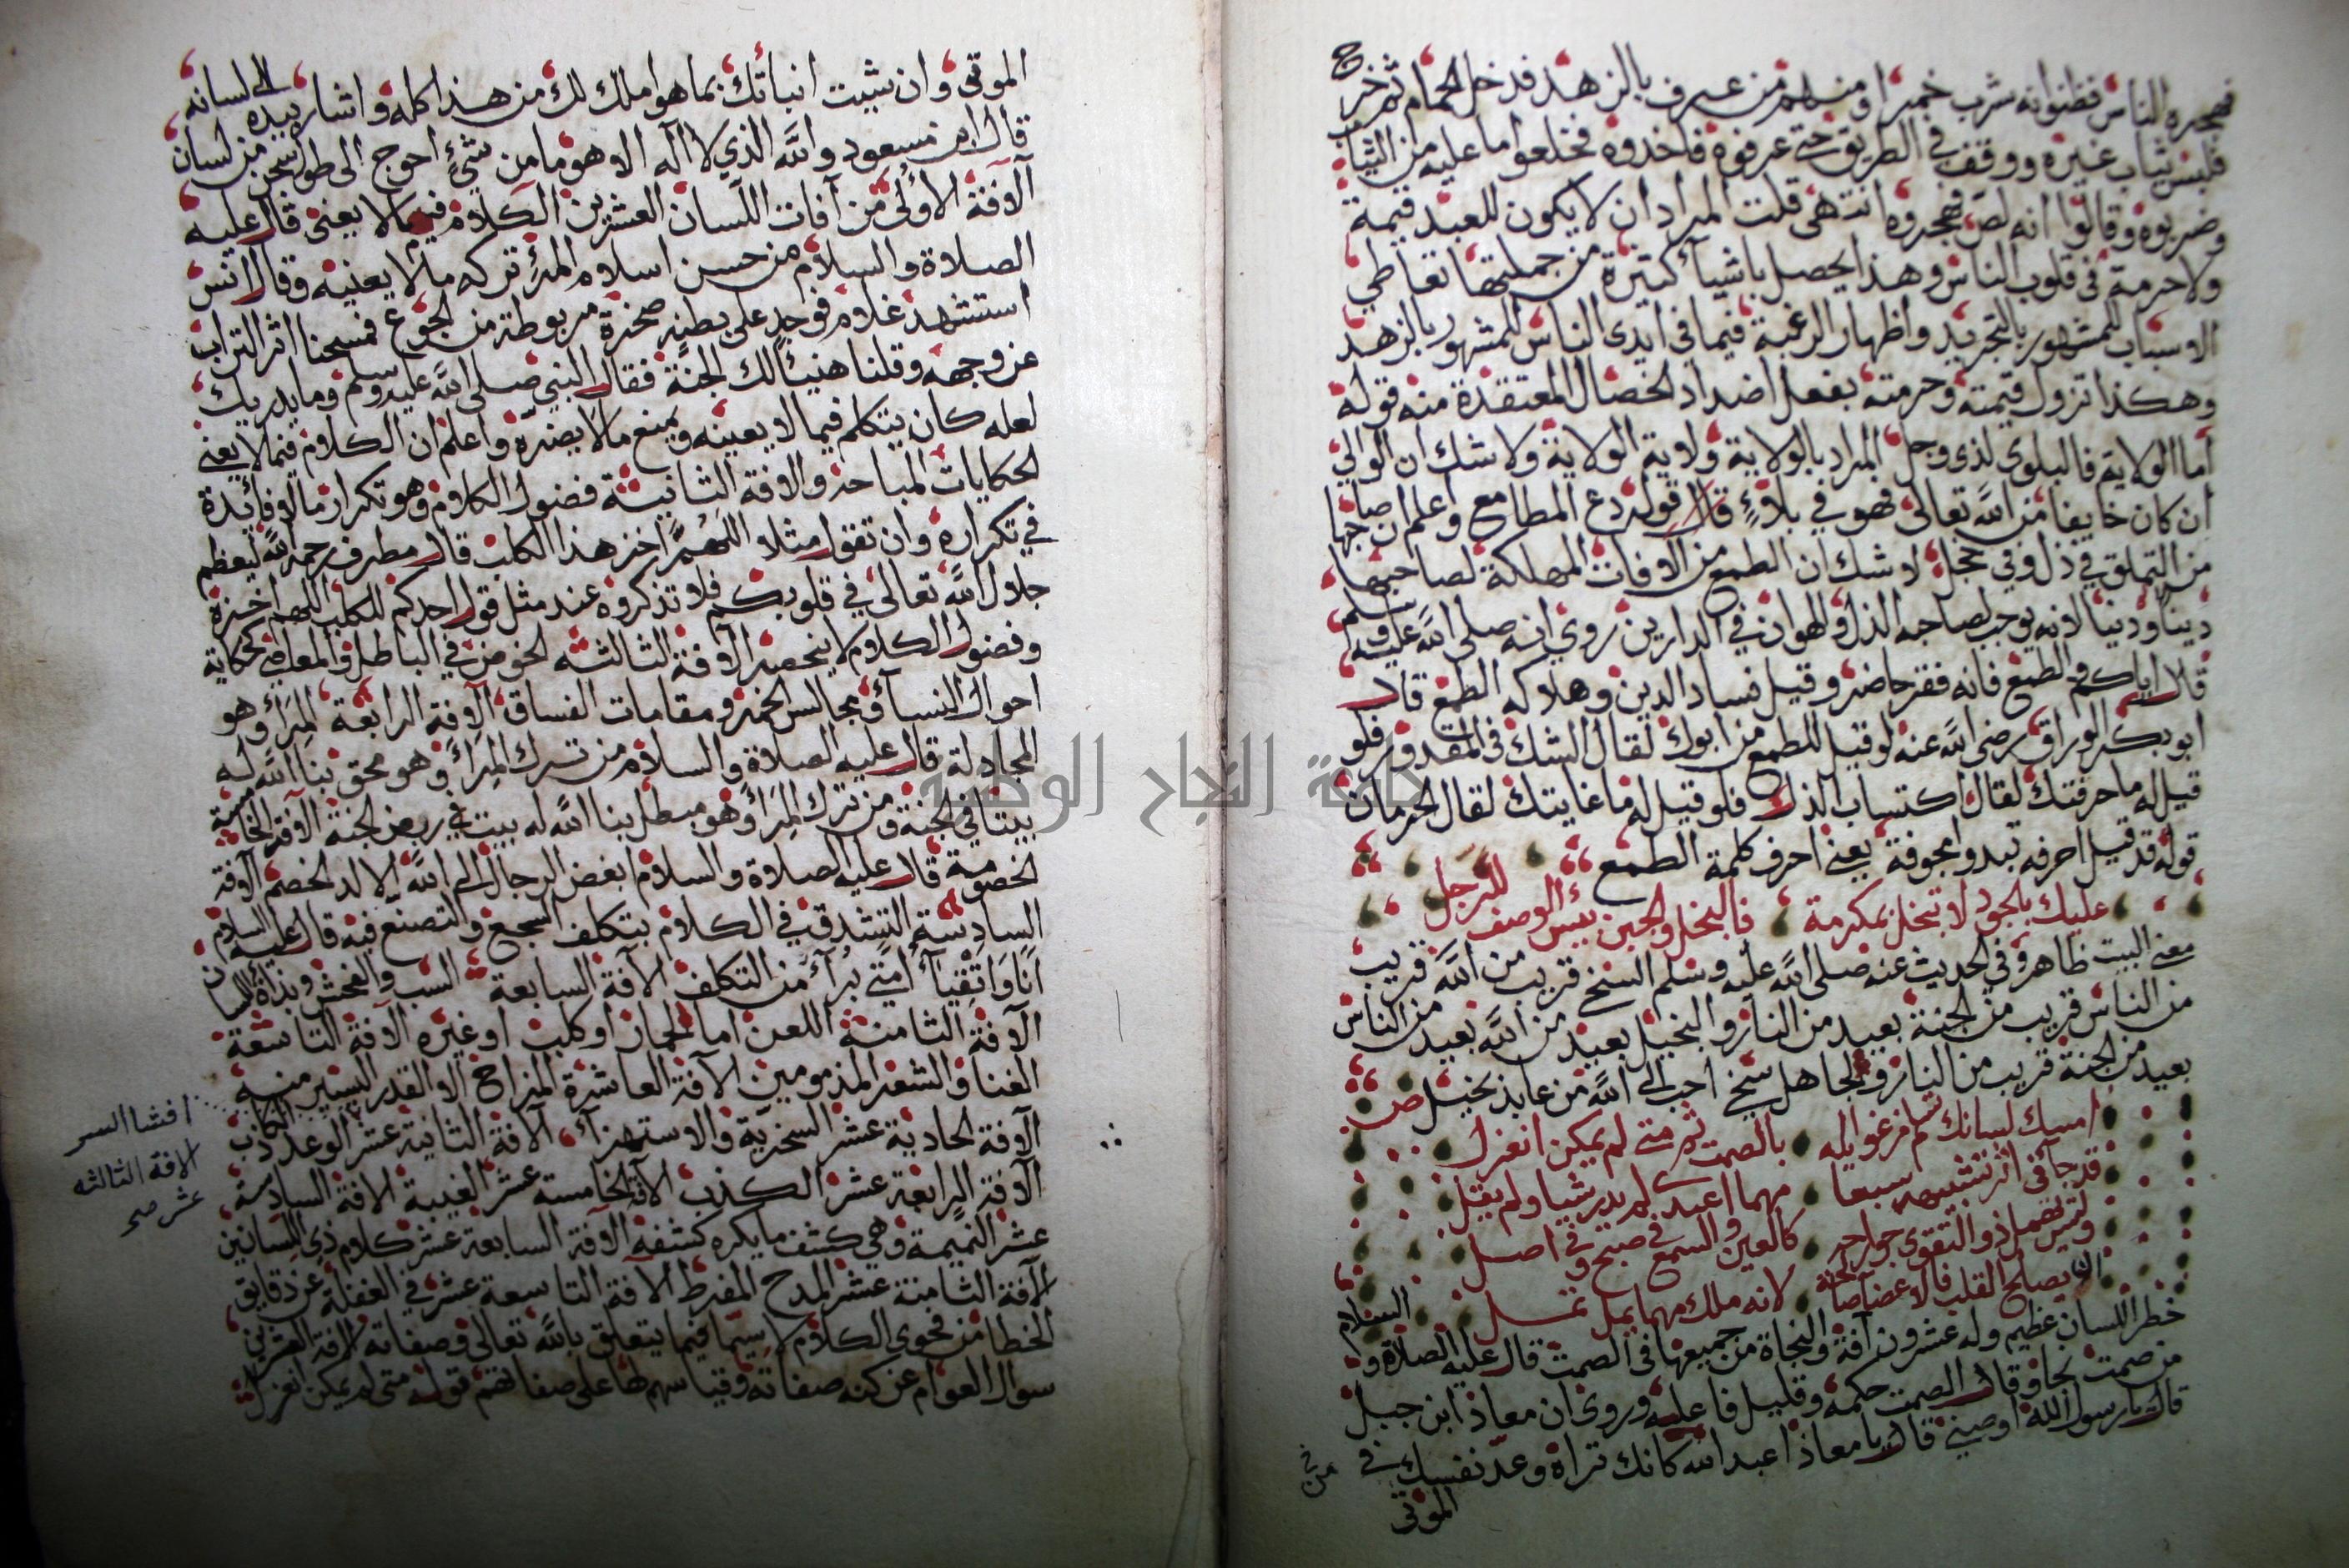 فهجره الناس فظنوا انه شرب خمرا ومنهم من عرف بالزهد فدخل الحمام ثم خرج
فلبس ثياب غيره ووقف في الطريق حتى عرفوه فاخذوه فخلعوا ما عليه من الثياب
وضربوه وقالوا انه لص فهجروه انتهى قلت المراد ان لا يكون للعبد قيمة
ولا حرمة في قلوب الناس وهذا يحصل باشيأ كثيرة من جملتها تعاطي
الاسباب للمشهور بالتجريد واظهار الرغبة فيما في ايدي الناس للمشهور بالزهد
وهكذا تزول قيمته وحرمته بفعل اضداد الخصال المعتقدة منه قوله
اما الولاية فالبلوى لذي وجل المراد بالولاية ولاية الولاية ولا شك ان الوالي
ان كان خايفا من الله تعالى فهو في بلاءٍ قال قوله دع المطامع واعلم ان صاحبها
من التملق في ذل وفي خجل لا شك ان الطمع من الافات المهلكة لصاحبها
دينا ودنيا لانه يوجب لصاحبه الذل والهوان في الدارين روي انه صلى الله عليه وسلم
قال اياكم والطمع فانه فقر حاضر وقيل فساد الدين وهلاكه الطمع قال
ابو بكر الوراق رضي الله عنه لو قيل للطمع من ابوك لقال الشك في المقدور فلو
قيل له ما حرفتك لقال اكتساب الذل فلو قيل له ما غايتك لقال الحرمان
قوله قد قيل احرفه تبدو مجوفة يعني احرف كلمة الطمع
عليك بالجود لا تبخل بمكرمة فالبخل والجبن بيس الوصف للرجل
معنى البيت ظاهر وفي الحديث عنه صلى الله عليه وسلم السخي قريب من الله قريب
من الناس قريب من الجنة بعيد من النار والبخيل بعيد من الله بعيد من الناس
بعيد من الجنة قريب من النار ولجاهل سخي احب الى الله من عابد بخيل ص
امسك لسانك بالصمت ثم متى لم يمكن انعزل
قد جا في اثر مهما اعيد لم يدر شيا ولم يقل
جوارحه كالعين والسمع في صبح وفي اصل
يصلح القلب فالاعضا صالحة لانه ملك مهما يمل تمل
خطر اللسان عظيم وله عشرون آفة والنجاة من جميعها في الصمت قال عليه الصلاة والسلام
من صمت نجا وقال الصمت حكمة وقليل فاعله وروى ان معاذ ابن جبل
قال يا رسول الله اوصيني قال يا معاذ اعبد الله كانك تراه وعد نفسك في
الموتى
الموتى وان شيت انباتك بما هو املك لك من هذا كله واشار بيده الى لسانه
قال ابن مسعود والله الذي لا اله الا هو ما من شئٍ احوج الى طول سجن من لسان
الآفة الأولى من آفات اللسان العشرين الكلام فيما لا يعنى قال عليه
الصلاة والسلام من حسن اسلام المرء تركه ما لا يعنيه وقال انس
استشهد غلام فوجد على بطنه صخرة مربوطة من الجوع فمسحنا اثر التراب
عن وجهه وقلنا هنيئا لك الجنة فقال النبي صلى الله عليه وسلم وما يدريك
لعله كان يتكلم فيما لا يعينه ويمنع ما لا يضره واعلم ان الكلام فيما لا يعني
الحكايات المباحة والافة الثانية فضول الكلام وهو تكرار ما لا فائدة
في تكراره وان تقول مثلا اللهم اخز هذا الكلب قال مطرف رحمه الله ليعظم
جلال الله تعالى في قلوبكم فلا تذكروه عند مثل قول احدكم للكلب اللهم اخزه
وفضول الكلام لا ينحصر الآفة الثالثة الخوض في الباطل والمعاصي كحكاية
احوال النسأ ومجالس الخمر ومقامات الفساق الآفة الرابعة المرأ وهو
المجادلة قال عليه الصلاة والسلام من ترك المرأ وهو محق بنا الله له
بيتا في الجنة ومن ترك المرأ وهو مبطل بنا الله له بيت في ربض الجنة الآفة الخامسة
الخصومة قال عليه الصلاة والسلام ابغض الرجال الى الله الالد الخصم الآفة
السادسة التشدق في الكلام بتكلف السجع والتصنع فيه قال عليه السلام
انا واتقيأ امتي برأ من التكلف الآفة السابعة السب والفحش وبذاة اللسان
الآفة الثامنة اللعن اما لحيوان او كلب او غيره الآفة التاسعة
الغنا والشعر المذمومين الآفة العاشرة المزاح الا القدر اليسير منه
الآفة الحادية عشر السخرية والاستهزآ الآفة الثانية عشر الوعد الكاذب
الآفة الرابعة عشر الكذب الآفة الخامسة عشر الغيبة الآفة السادسة
عشر النميمة وهي كشف ما يكره كشفه الآفة السابعة عشر كلام ذي اللسانين
الآفة الثامنة عشر المدح المفرط الآفة التاسعة عشر في الغفلة عن دقايق
الخطا من فحوى الكلام لا سيما فيما يتعلق بالله تعالى وصفاته الآفة العشرين
سوال العوام عن كنه صفاته وقياسهم لها على صفاتهم قوله متى لم يمكن انعزل
افشا السر
الآفة الثالثة
عشر صح
جامعة النجاح الوطنية